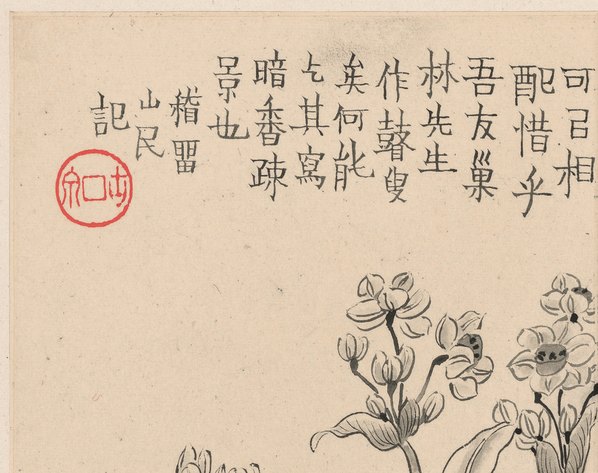 可㠯相
配惜乎
吾友巢
林先生
作瞽叟
矣何能
乞其寫
暗香疎
景也
稽留
山民
記